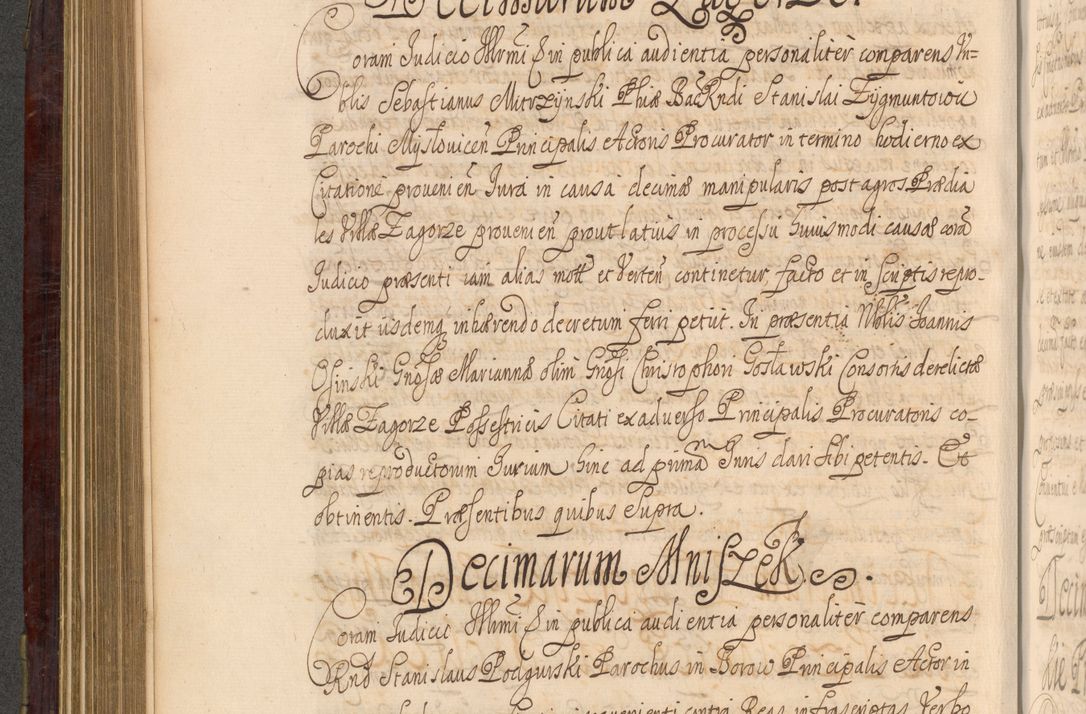 Decimarum Zagorze.
Coram Judicio Illrmi & in publica audientia personaliter comparens No-
blis Sebastianus Mierzynski Phiæ Bac Rndi Stanislai Zygmuntowic
Parochi Mysłovicen Principalis Actoris Procurator in termino hodierno ex
Citatione provenien Jura in causa decimæ manipularis post agros Prædia
les Villæ Zagorze provenien prout latius in processu huiusmodi causæ corã
Judicio præsenti iam alias mott et Verten continetur, facto et in scriptis repro-
duxit iisdemq inhærendo decretum ferri petiit. In præsentia Nblis Joannis
Osinski Gnosæ Mariannæ olim Gnosi Christophori Gosławski Consortis derelictæ
Villæ Zagorze Possestricis Citati ex adverso Principalis Procuratoris co-
pias reproductorum Jurium hinc ad primam Juris dari sibi petentis. Et
obtinentis. Præsentibus quibus supra.
Decimarum Mniszek.
Coram Judicio Illrmi & in publica audientia personaliter comparens
Rnd Stanislaus Podgurski Parochus in Borow Principalis Actor in
contra Reos infrascriptos Verbo